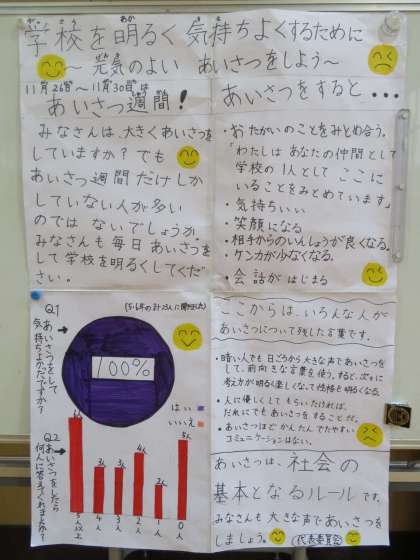 学校を明るく 気持ちよくするために
がっこう あか きも
～ 元気のよい あいさつをしよう～
11月26日～11月30日は
あいさつ週間!
みなさんは、大きくあいさつを
していますか? でも
あいさつ週間だけしか
していない人が多い
のでは ないでしょうか。
みなさんも毎日あいさつを
して学校を明るくしてくだ
さい。
あいさつをすると...
・おたがいのことをみとめ合う。
「わたしは あなたの仲間として
学校の1人として ここに
いることをみとめています」
・気持ちいい
・笑顔になる
・相手からのいんしょうが良くなる。
・ケンカが少なくなる。
・会話が はじまる
Q1
あいさつをして
気持ちよかったですか?
100%
はい
いいえ
Q2
あいさつをしたら
何人に答えてくれますか?
3人
3人
4人
2人
5人
5人以上
4人
3人
2人
1人
0人
ここからは、いろんな人が
あいさつについて残した言葉です。
・暗い人でも日ごろから大きな声であいさつを
して、前向きな言葉を使う。すると、次々に
考え方が明るく楽しくなって性格も明るくなる。
・人に優しくしてもらいたければ、
だれにでもあいさつをすることだ。
・あいさつほどかんたんでたやすい
コミュニケーションはない。
あいさつは、社会の
基本となるルールです。
みなさんも大きな声であいさつを
しましょう。
(代表委員会)